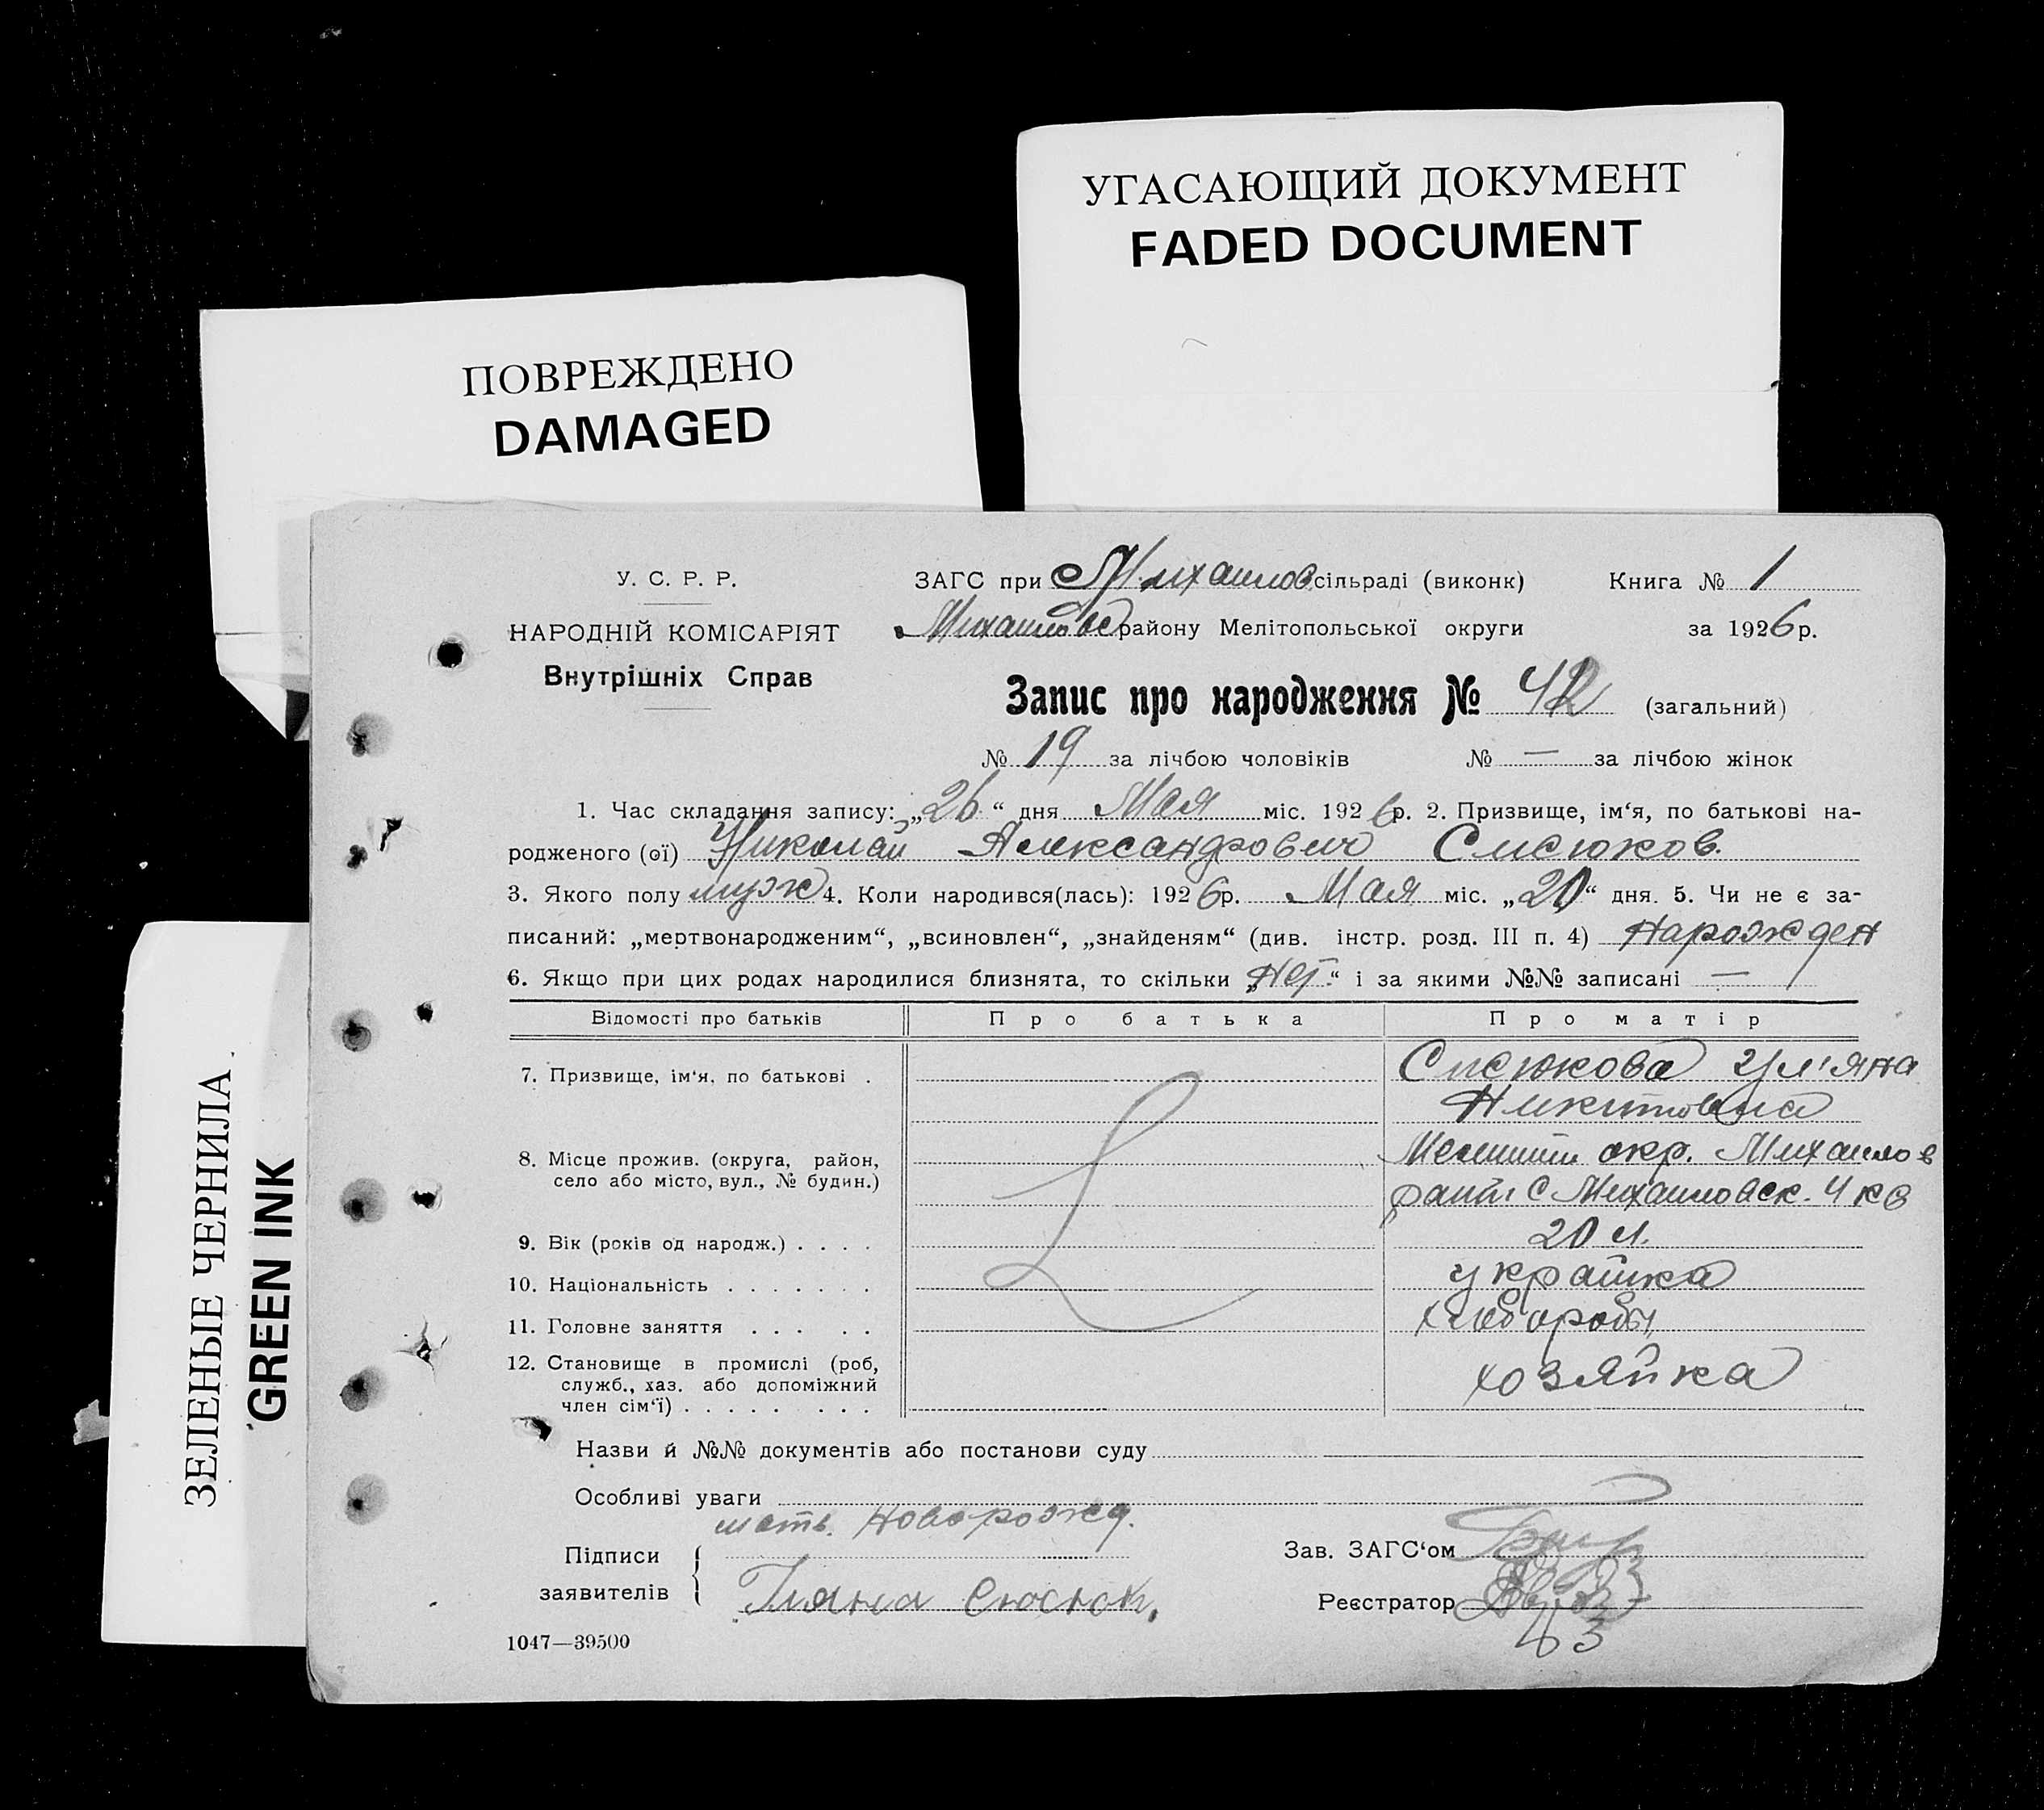 УГАСАЮЩИЙ ДОКУМЕНТ
FADED DOCUMENT
ПОВРЕЖДЕНО
DAMAGED
ЗЕЛЕНЫЕ ЧЕРНИЛА
GREEN INK
У. С. Р. Р.
НАРОДНІЙ КОМІСАРІЯТ
Внутрішніх Справ
ЗАГС при Михайлов сільраді (виконк) Книга № 1
Михайлов району Мелітопольської округи за 1926 р.
Запис про народження № 42 (загальний)
№ 19 за лічбою чоловіків № — за лічбою жінок
1. Час складання запису: „26“ дня Мая міс. 1926 р. 2. Призвище, ім‘я, по батькові на-
родженого (ої) Николай Александрович
3. Якого полу муж 4. Коли народився(лась): 1926 р. Мая міс. „20“ дня. 5. Чи не є за-
писаний: „мертвонародженим“, „всиновлен“, „знайденям“ (див. інстр. розд. III п. 4) Нарожден
6. Якщо при цих родах народилися близнята, то скільки „Нет“ і за якими №№ записані —
Відомості про батьків Про батька Про матір
7. Призвище, ім‘я, по батькові . Ул'яна
Никитовна
8. Місце прожив. (округа, район, окр. Михайлов
село або місто, вул., № будин.) С Михайловск. 4 кв
9. Вік (років од народж.) . . . . 20 л.
10. Національність . . . . . . . украинка
11. Головне заняття . . . . .
12. Становище в промислі (роб, хозяйка
служб., хаз. або допоміжний
член сім‘ї) . . . . . . . .
Назви й №№ документів або постанови суду
Особливі уваги
мать новорожд.
Підписи
заявителів
Зав. ЗАГС‘ом
Реєстратор
1047—39500